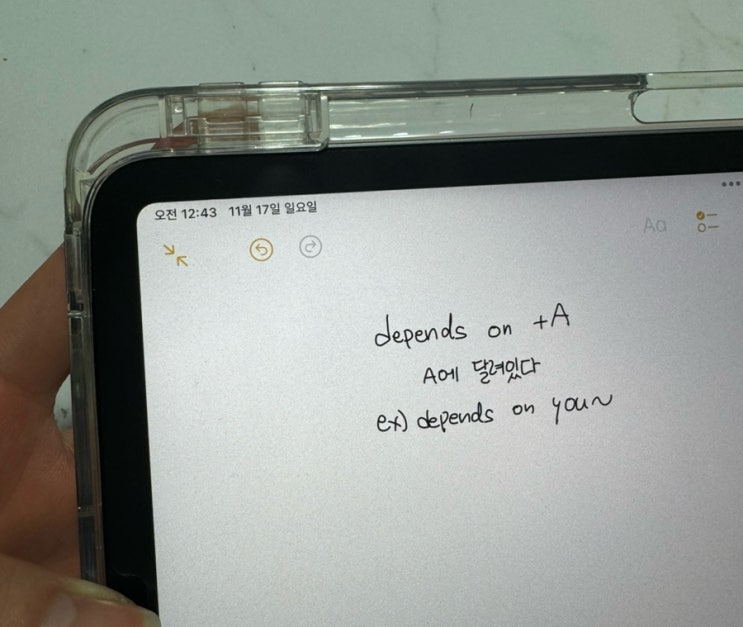 오전 12:43 11월 17일 일요일
Aa
depends on +A
A에 달려있다
ex) depends on you~